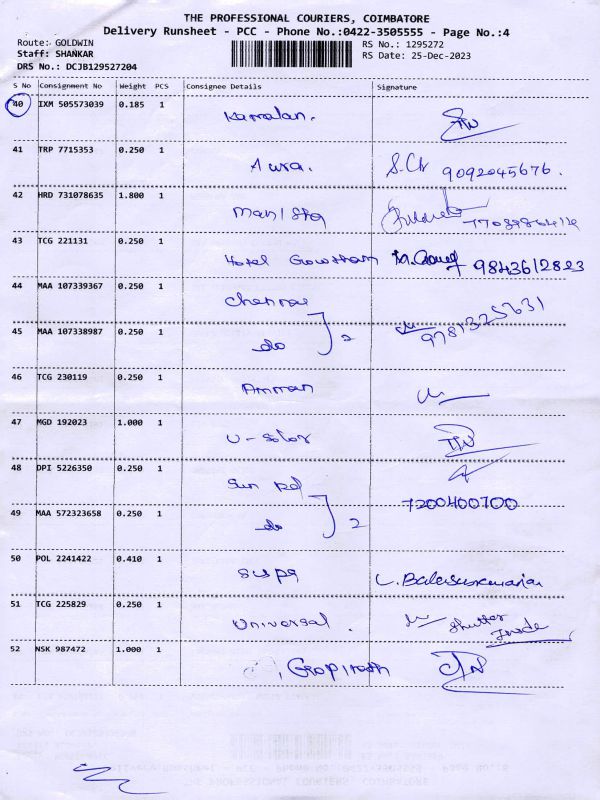 THE PROFESSIONAL COURIERS, COIMBATORE
Delivery Runsheet - PCC - Phone No.:0422-3505555 - Page No.:4
Route: GOLDWIN
Staff: SHANKAR
DRS No.: DCJB129527204
RS No.: 1295272
RS Date: 25-Dec-2023
S No Consignment No Weight PCS Consignee Details Signature
40 IXM 505573039 0.185 1
Kamalan.
41 TRP 7715353 0.250 1
Aura. 9092045676.
42 HRD 731078635 1.800 1
43 TCG 221131 0.250 1
Hotel Gowtham 9843612823
44 MAA 107339367 0.250 1
Chennai
9781325631
45 MAA 107338987 0.250 1
do 2
46 TCG 230119 0.250 1
Amman
47 MGD 192023 1.000 1
U-Solar
48 DPI 5226350 0.250 1
Sun pd
7200400700
49 MAA 572323658 0.250 1
do 2
50 POL 2241422 0.410 1
Supa L. Balasukumaran
51 TCG 225829 0.250 1
Universal. Shutter
Trade
52 NSK 987472 1.000 1
Gopinath